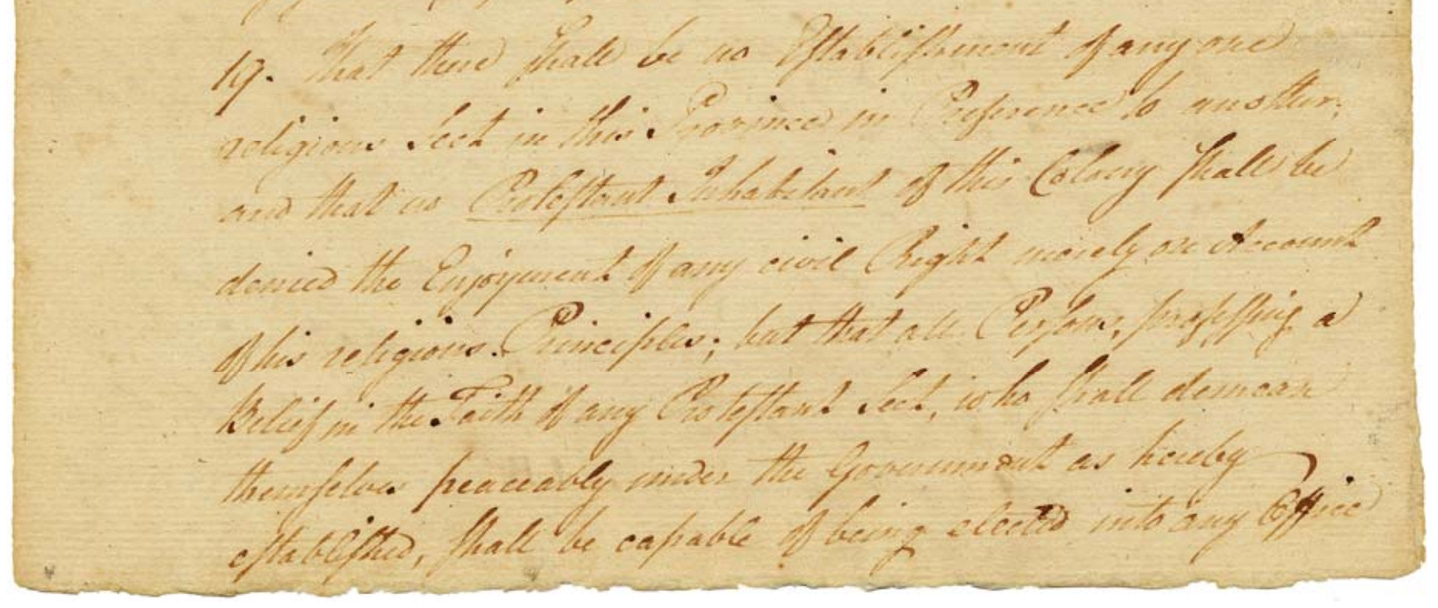 19. That there shall be no Establishment of any one
religious Sect in this Province in Preference to another;
and that no Protestant Inhabitant of this Colony shall be
denied the Enjoyment of any civil Right merely on Account
of his religious Principles; but that all Persons, professing a
Belief in the Faith of any Protestant Sect, who shall demean
themselves peaceably under the Government as hereby
established, shall be capable of being elected into any Office